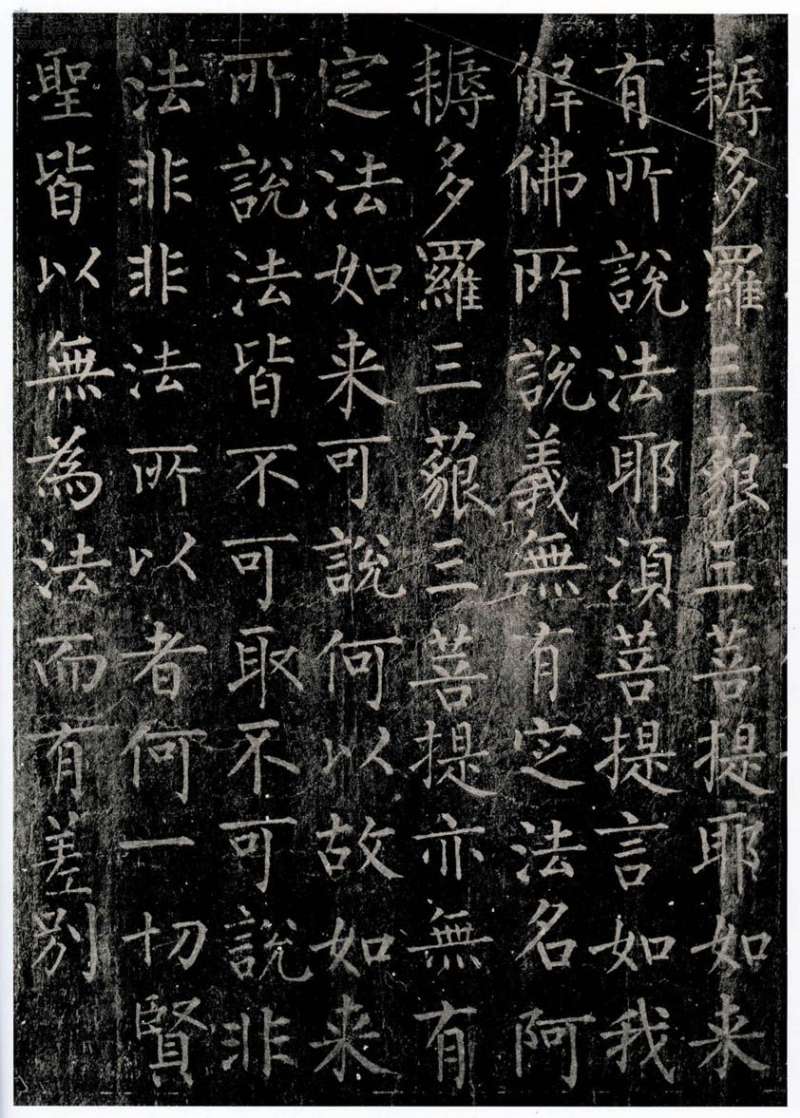 耨多羅三藐三菩提耶如来
有所說法耶湏菩提言如我
解佛所說義無有定法名阿
耨多羅三藐三菩提亦無有
定法如来可說何以故如来
所說法皆不可取不可說非
法非非法所以者何一切賢
聖皆以無為法而有差别